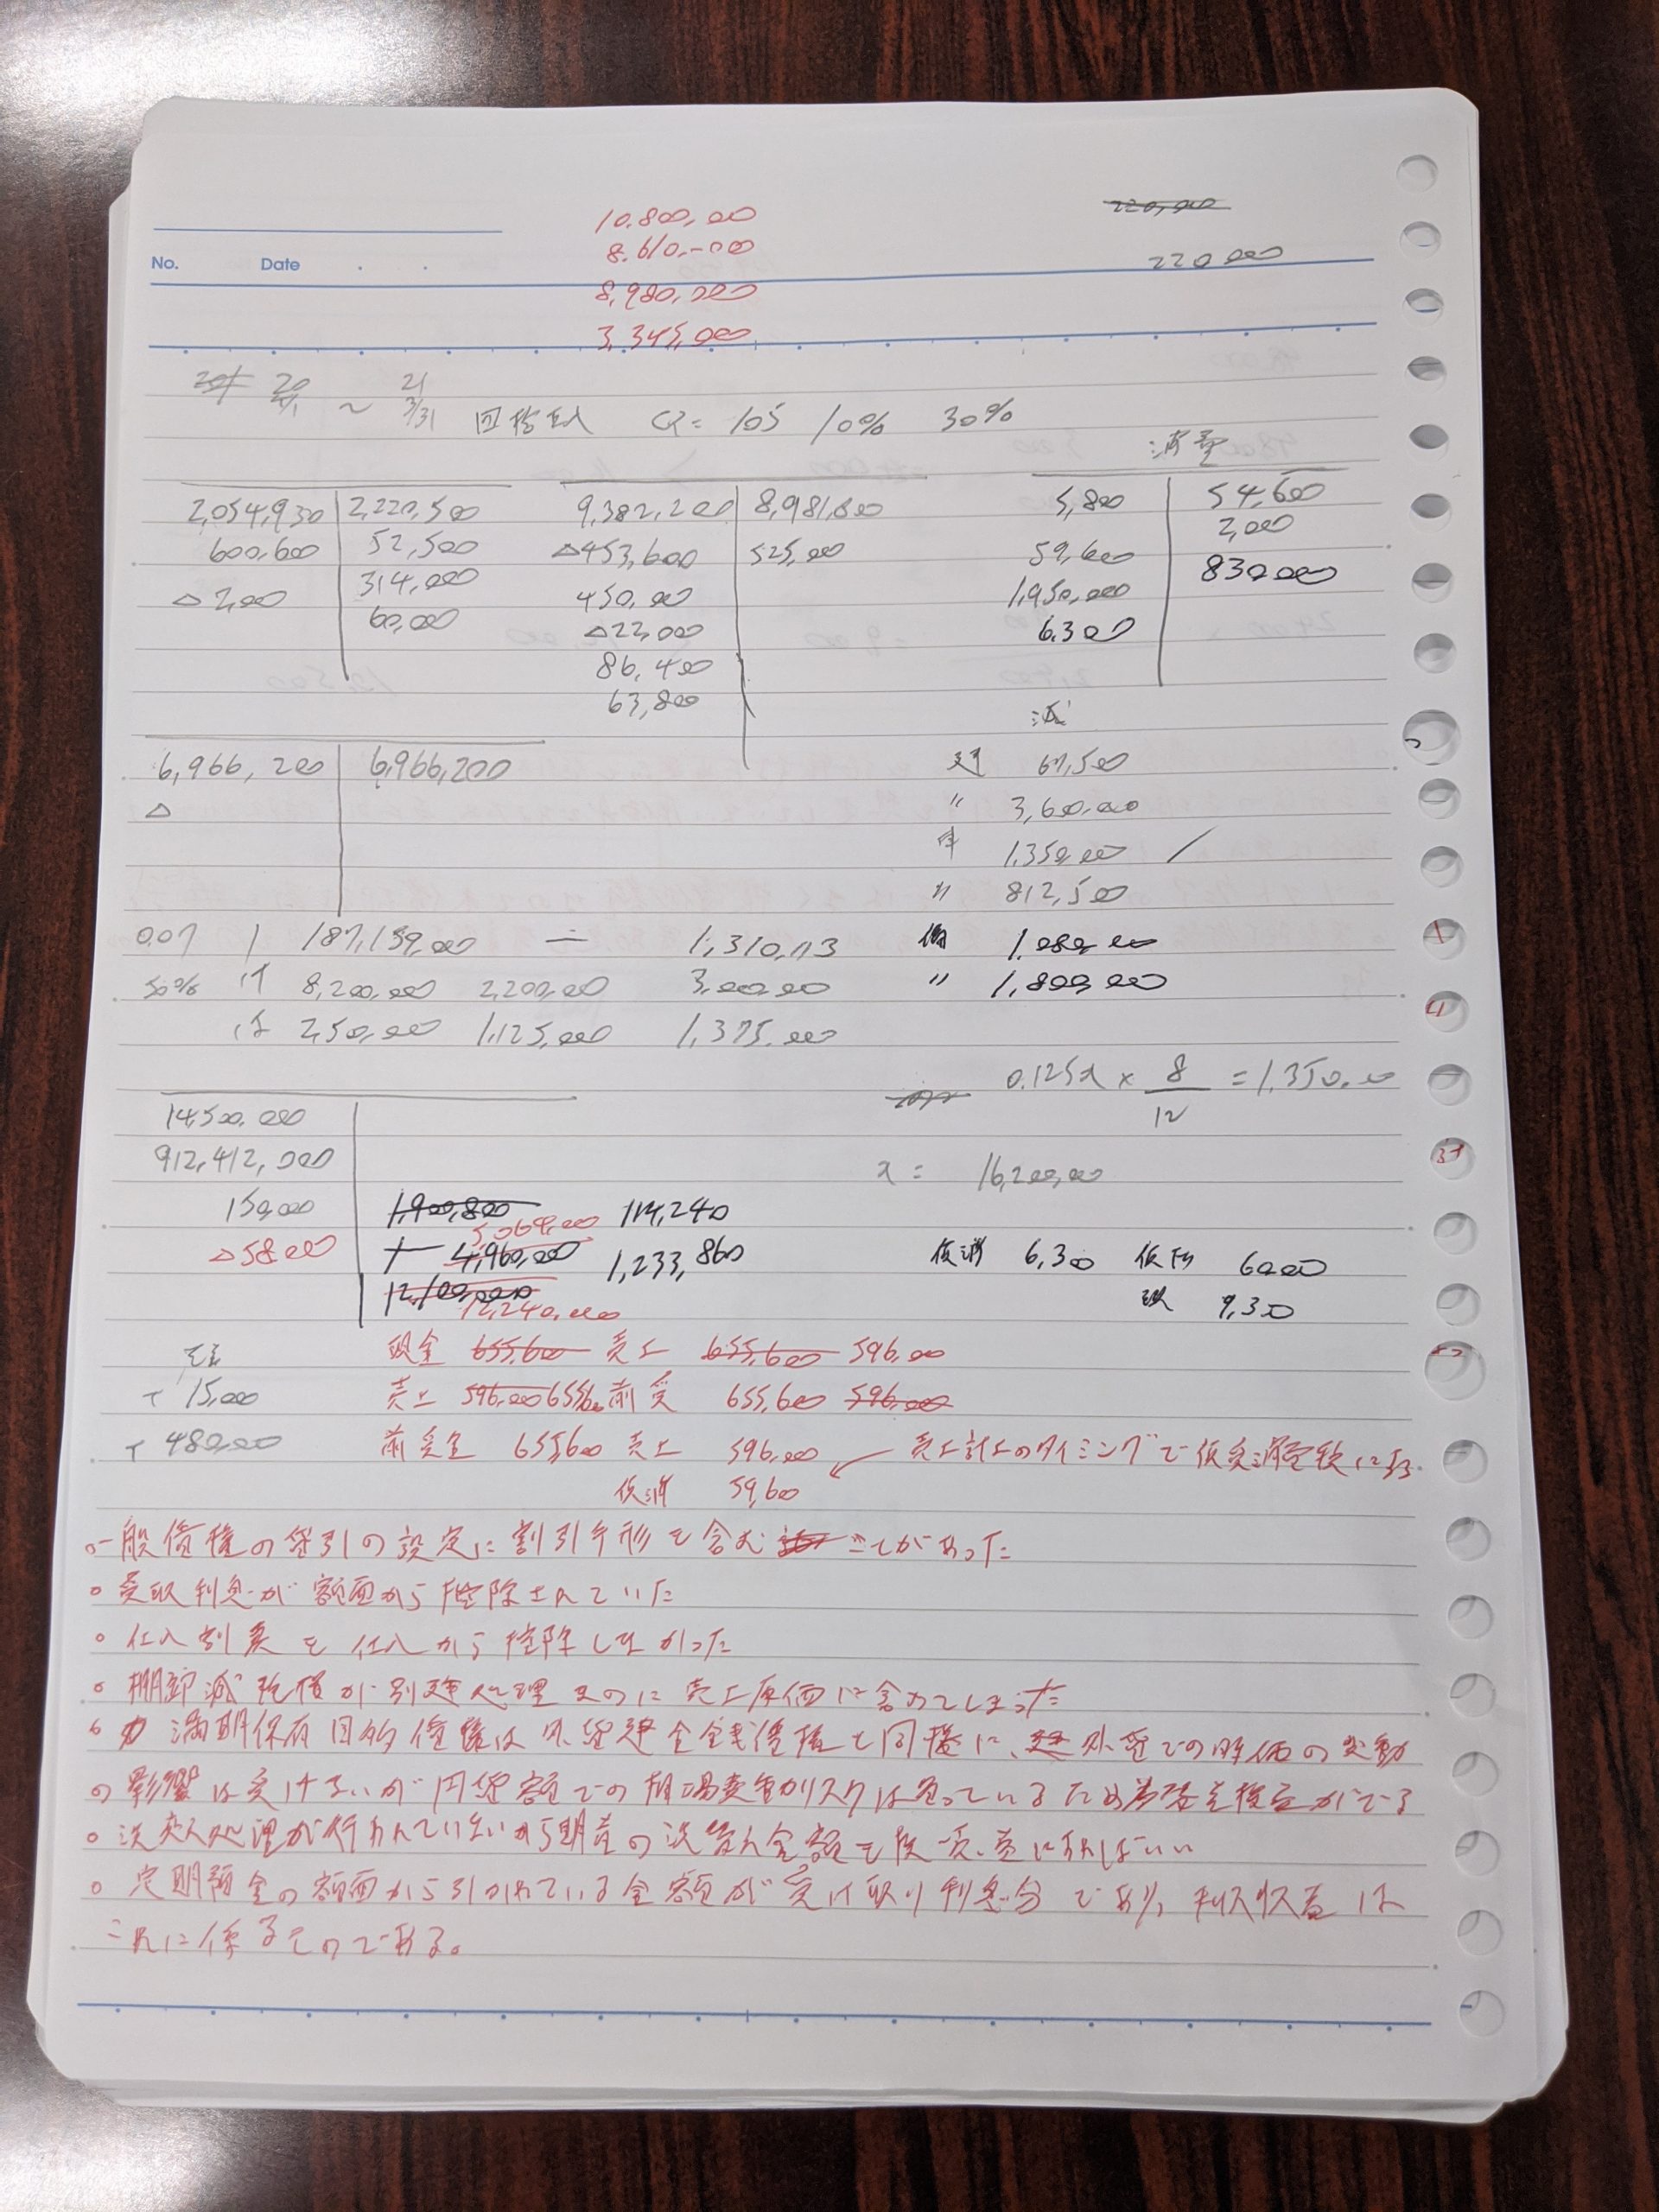 10,800,000
8,610,000
8,980,000
3,345,000
220,000
220,000
No. Date
20 4/1 ～ 21 3/31 Q = 105 10% 30%
消費
2,054,930 2,220,500 9,382,200 8,981,800 5,800 54,600
600,600 52,500 △453,600 525,000 59,600 2,000
△2,000 314,000 450,000 1,950,000 830,000
60,000 △22,000 6,300
86,400
63,800
6,966,200 6,966,200 67,500
△ 〃 3,600,000
1,350,000
〃 812,500
0.07 187,159,000 － 1,310,113 1,080,000
50% 8,200,000 2,200,000 3,000,000 〃 1,800,000
2,500,000 1,125,000 1,375,000
0.125x × 8/12 = 1,350,000
14,500,000
912,412,000 x = 16,200,000
150,000 1,900,800 114,240
△58,000 5,064,000 4,960,000 1,233,860 仮消 6,300 6,000
12,100,000 12,240,000 現 9,300
現金 655,600 売上 655,600 596,000
15,000 売上 596,000 655,600 前受 655,600 596,000
480,000 前受金 655,600 売上 596,000 ← 売上計上のタイミングで仮受消費税になる
仮消 59,600
一般債権の貸引の設定に割引手形を含むことがあった
受取利息が額面から控除されていた
仕入割戻を仕入から控除しなかった
棚卸減耗損が別途処理なのに売上原価に含めてしまった
満期保有目的債権は外貨建金銭債権と同様に、外貨での時価の変動
の影響は受けないが円貨額での相場変動リスクは負っているため
洗替処理が行われていないから期首の洗替金額を
定期預金の額面から引かれている金額が受け取り利息分であり、
これに係るものである。